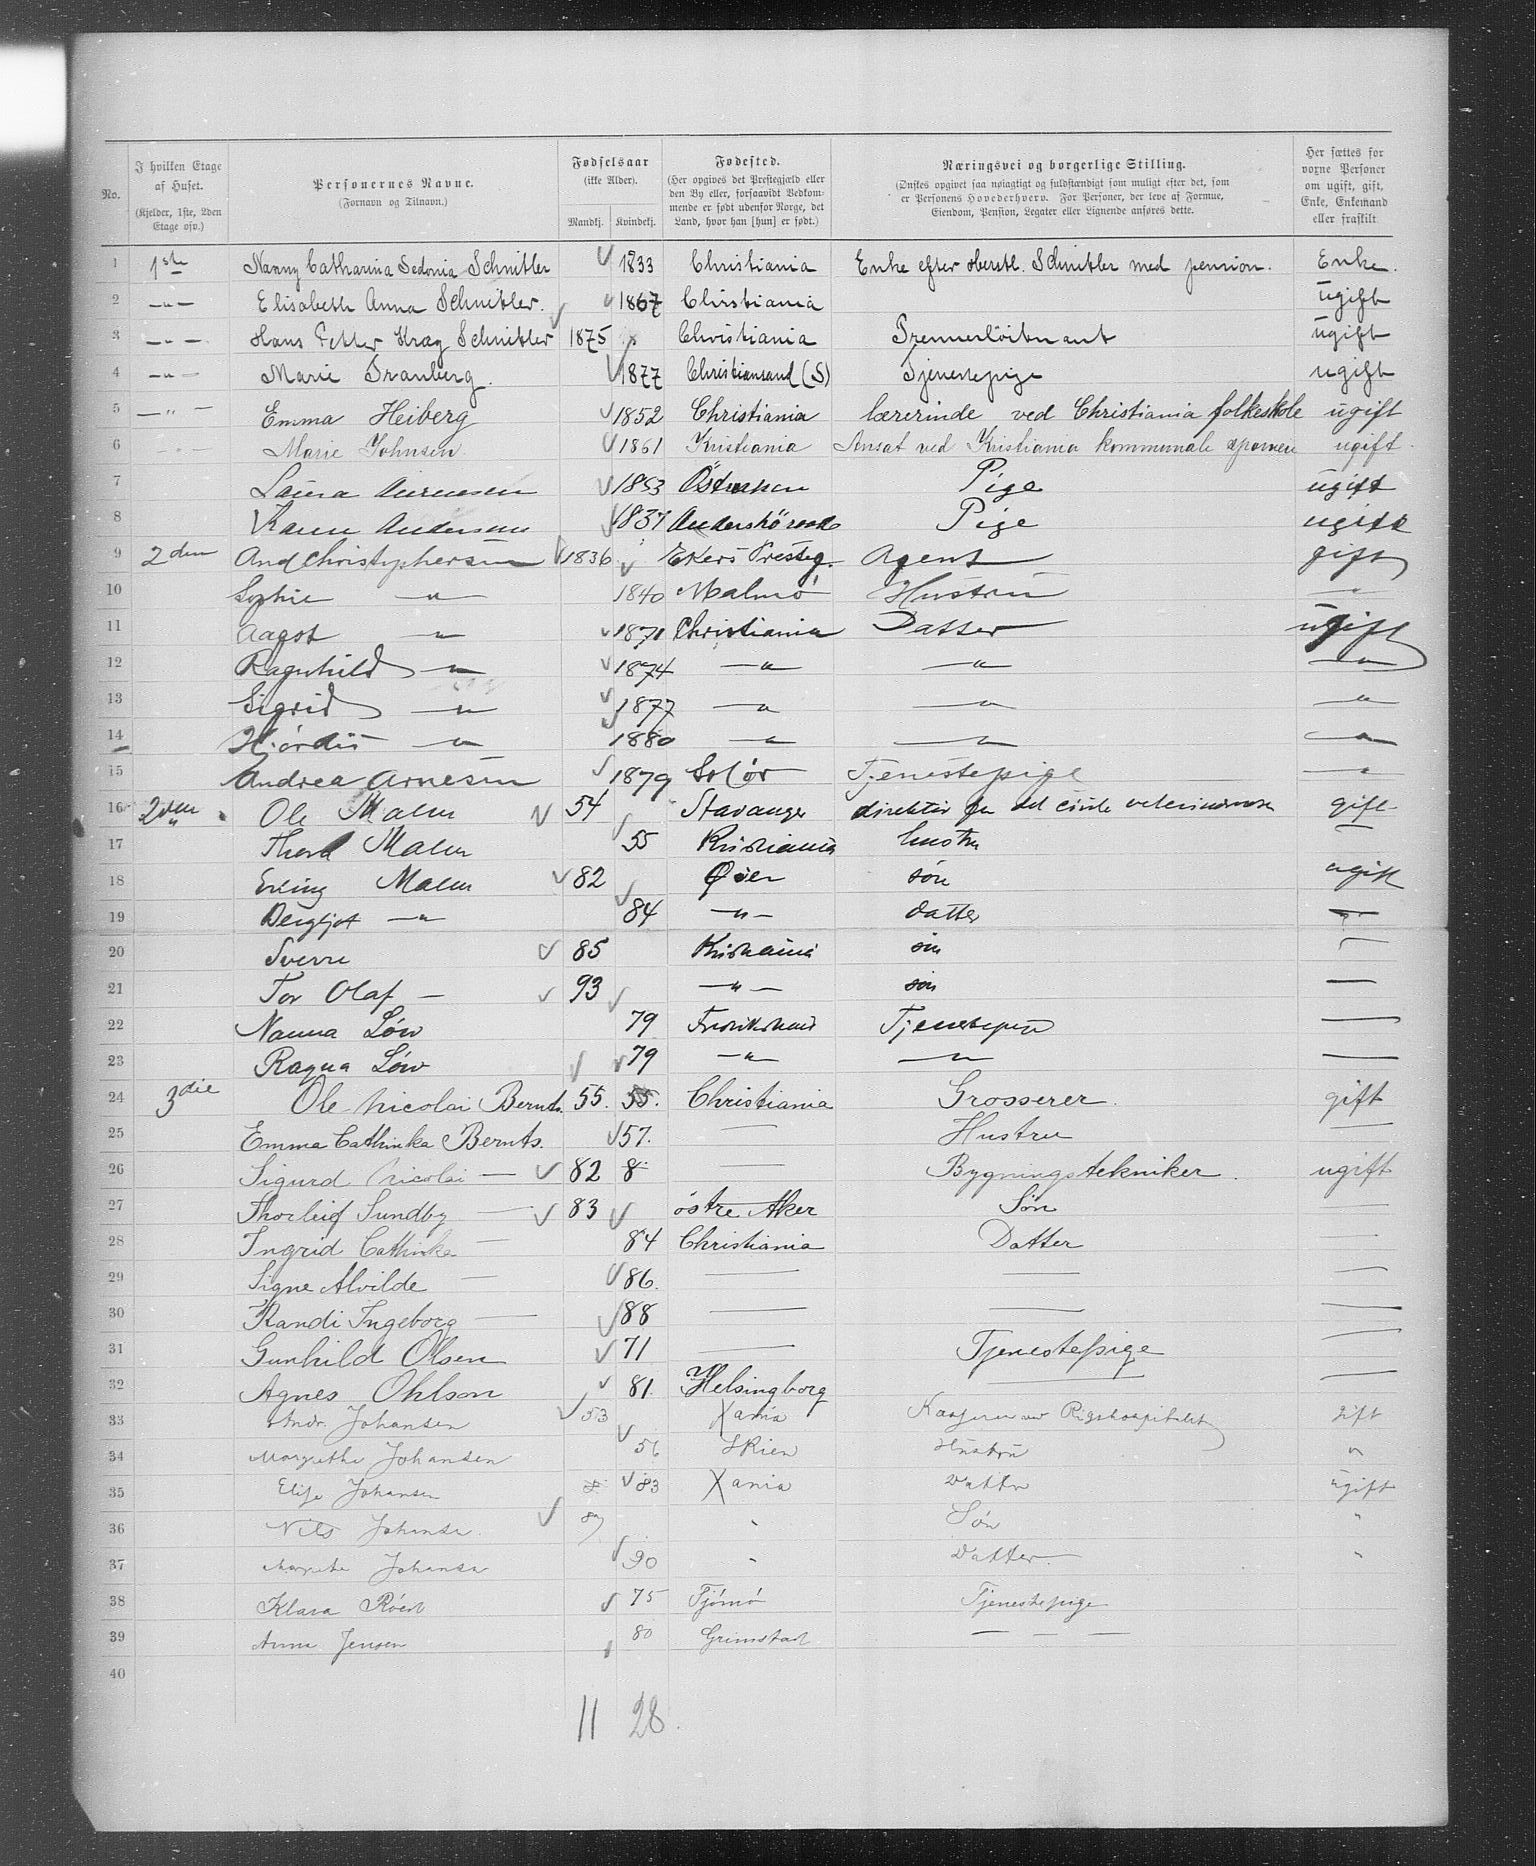 No.
I hvilken Etage af Huset. (Kjelder, 1ste, 2den Etage osv.)
Personernes Navne. (Fornavn og Tilnavn.)
Fødselsaar (ikke Alder). Mandkj. Kvindekj.
Fødested. (Her opgives det Prestegjæld eller den By eller, forsaavidt Vedkommende er født udenfor Norge, det Land, hvor han [hun] er født.)
Næringsvei og borgerlige Stilling. (Ønskes opgivet saa nøiagtigt og fuldstændigt som muligt efter det, som er Personens Hovederhverv. For Personer, der leve af Formue, Eiendom, Pension, Legater eller Lignende anføres dette.
Her sættes for voxne Personer om ugift, gift, Enke, Enkemand eller fraskilt
1 1ste Nanny Catharina Sedonia Schnitler 1833 Christiania Enke efter Oberstl. Schnitler med pension. Enke.
2 -"- Elisabeth Anna Schnitler. 1867 Christiania ugift
3 -"- Hans Petter Krag Schnitler 1875 Christiania Premierløitnant ugift
4 -"- Marie Tranberg. 1877 Christiansand (S) Tjenestepige ugift
5 -"- Emma Heiberg 1852 Christiania lærerinde ved Christiania folkeskole ugift
6 -"- Marie Johnsen 1861 Kristiania Ansat ved Kristiania kommunale ugift
7 Laura 1853 Pige ugift
8 Andersen 1837 Pige ugift
9 2den And Christophersen 1836 Ekers Presteg. Agent gift
10 Sophie -"- 1840 Malmø Hustru "
11 Aagot -"- 1871 Christiania Datter ugift
12 Ragnhild -"- 1874 -"- -"- -"-
13 Sigrid -"- 1877 -"- -"- -"-
14 Hjørdis -"- 1880 -"- -"- -"-
15 Andrea Arnesen 1879 Solør Tjenestepige -"-
16 2den Ole Malm 54 Stavanger direktør for det civile veterinærvæsen gift
17 Thora Malm 55 Kristiania hustru
18 Erling Malm 82 Øier søn ugift
19 Bergljot -"- 84 -"- datter —
20 Sverre 85 Kristiania søn —
21 Tor Olaf - 93 -"- søn —
22 Nanna Löw 79 Fredrikshald Tjenestepige —
23 Ragna Löw 79 -"- -"- —
24 3die Ole Nicolai Bernts. 55. 55. Christiania Grosserer. gift
25 Emma Cathinka Bernts. 57. — Hustru —
26 Sigurd Nicolai — 82 8 — Bygningstekniker. ugift
27 Thorleif Sundby — 83 østre Aker Søn —
28 Ingrid Cathinka — 84 Christiania Datter —
29 Signe Alvilde — 86. — — —
30 Randi Ingeborg — 88 — — —
31 Gunhild Olsen 71 — Tjenestepige —
32 Agnes Ohlson 81 Helsingborg — —
33 Andr. Johansen 53 Xania Kasserer ved Rigshospitalet gift
34 Margrethe Johansen 56 Skien Hustru "
35 Elise Johansen 8 83 Xania Datter ugift
36 Nils Johansen. 87 " Søn "
37 Margrethe Johansen 90 " Datter "
38 Klara 75 Tjømø Tjenestepige
39 Anna Jensen 80 Grimstad — — —
40
11 28.